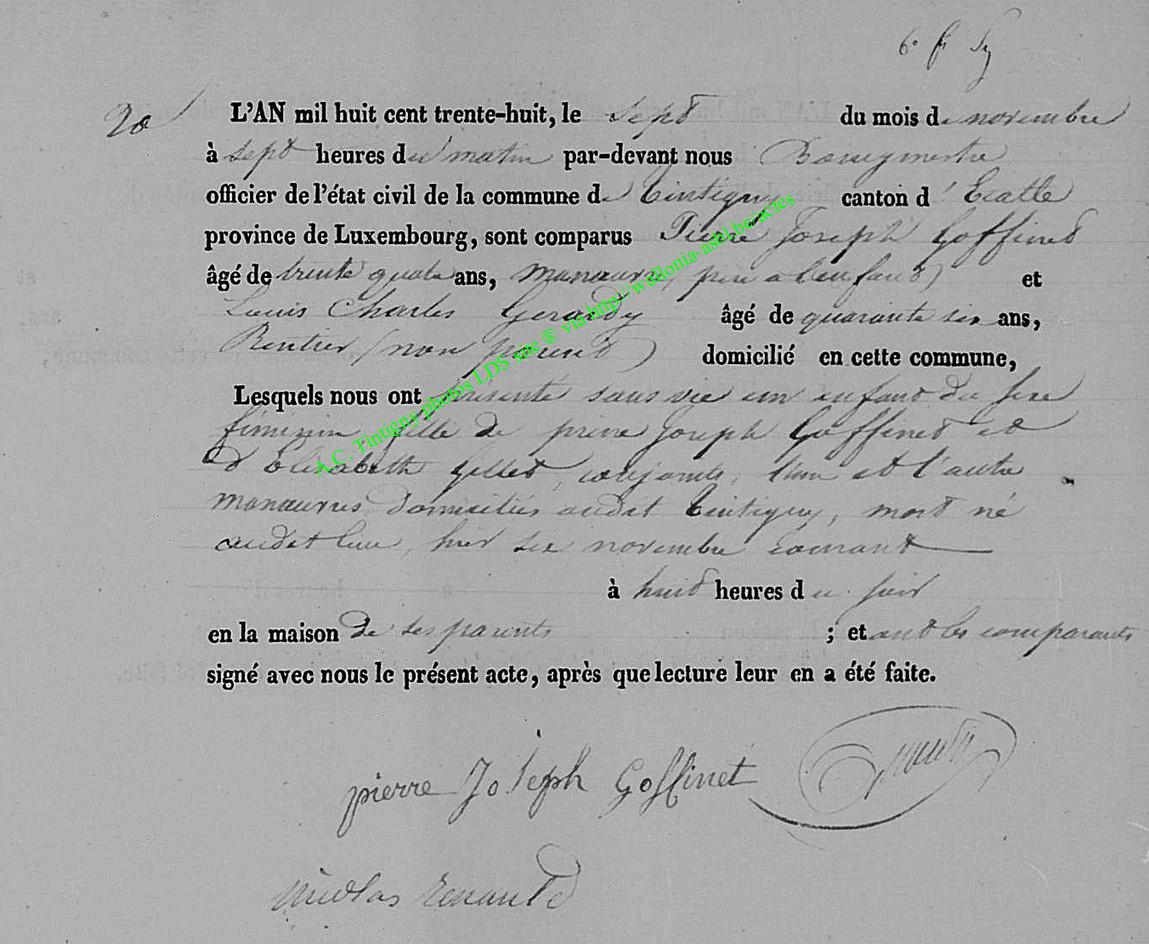 6e f Sy
20
L'AN mil huit cent trente-huit, le sept du mois de novembre
à sept heures du matin par-devant nous Bourgmestre
officier de l'état civil de la commune de Tintigny canton d'Etalle
province de Luxembourg, sont comparus Pierre Joseph Goffinet
âgé de trente quatre ans, manœuvre (père a l'enfant) et
Louis Charles Gerardy âgé de quarante six ans,
Rentier, (non parent) domicilié en cette commune,
Lesquels nous ont présenté sans vie un enfant du sexe
féminin fille de pierre Joseph Goffinet et
d'Elisabeth Gillet, conjoints, l'un et l'autre
manœuvres domiciliés audit Tintigny, mort né
audit lieu, hier six novembre courant
à huit heures du soir
en la maison de ses parents ; et ont les comparants
signé avec nous le présent acte, après que lecture leur en a été faite.
pierre Joseph Goffinet
nicolas renauld
A.C. Tintigny photos LDS site ® via http://wallonia-asbl.be/actes